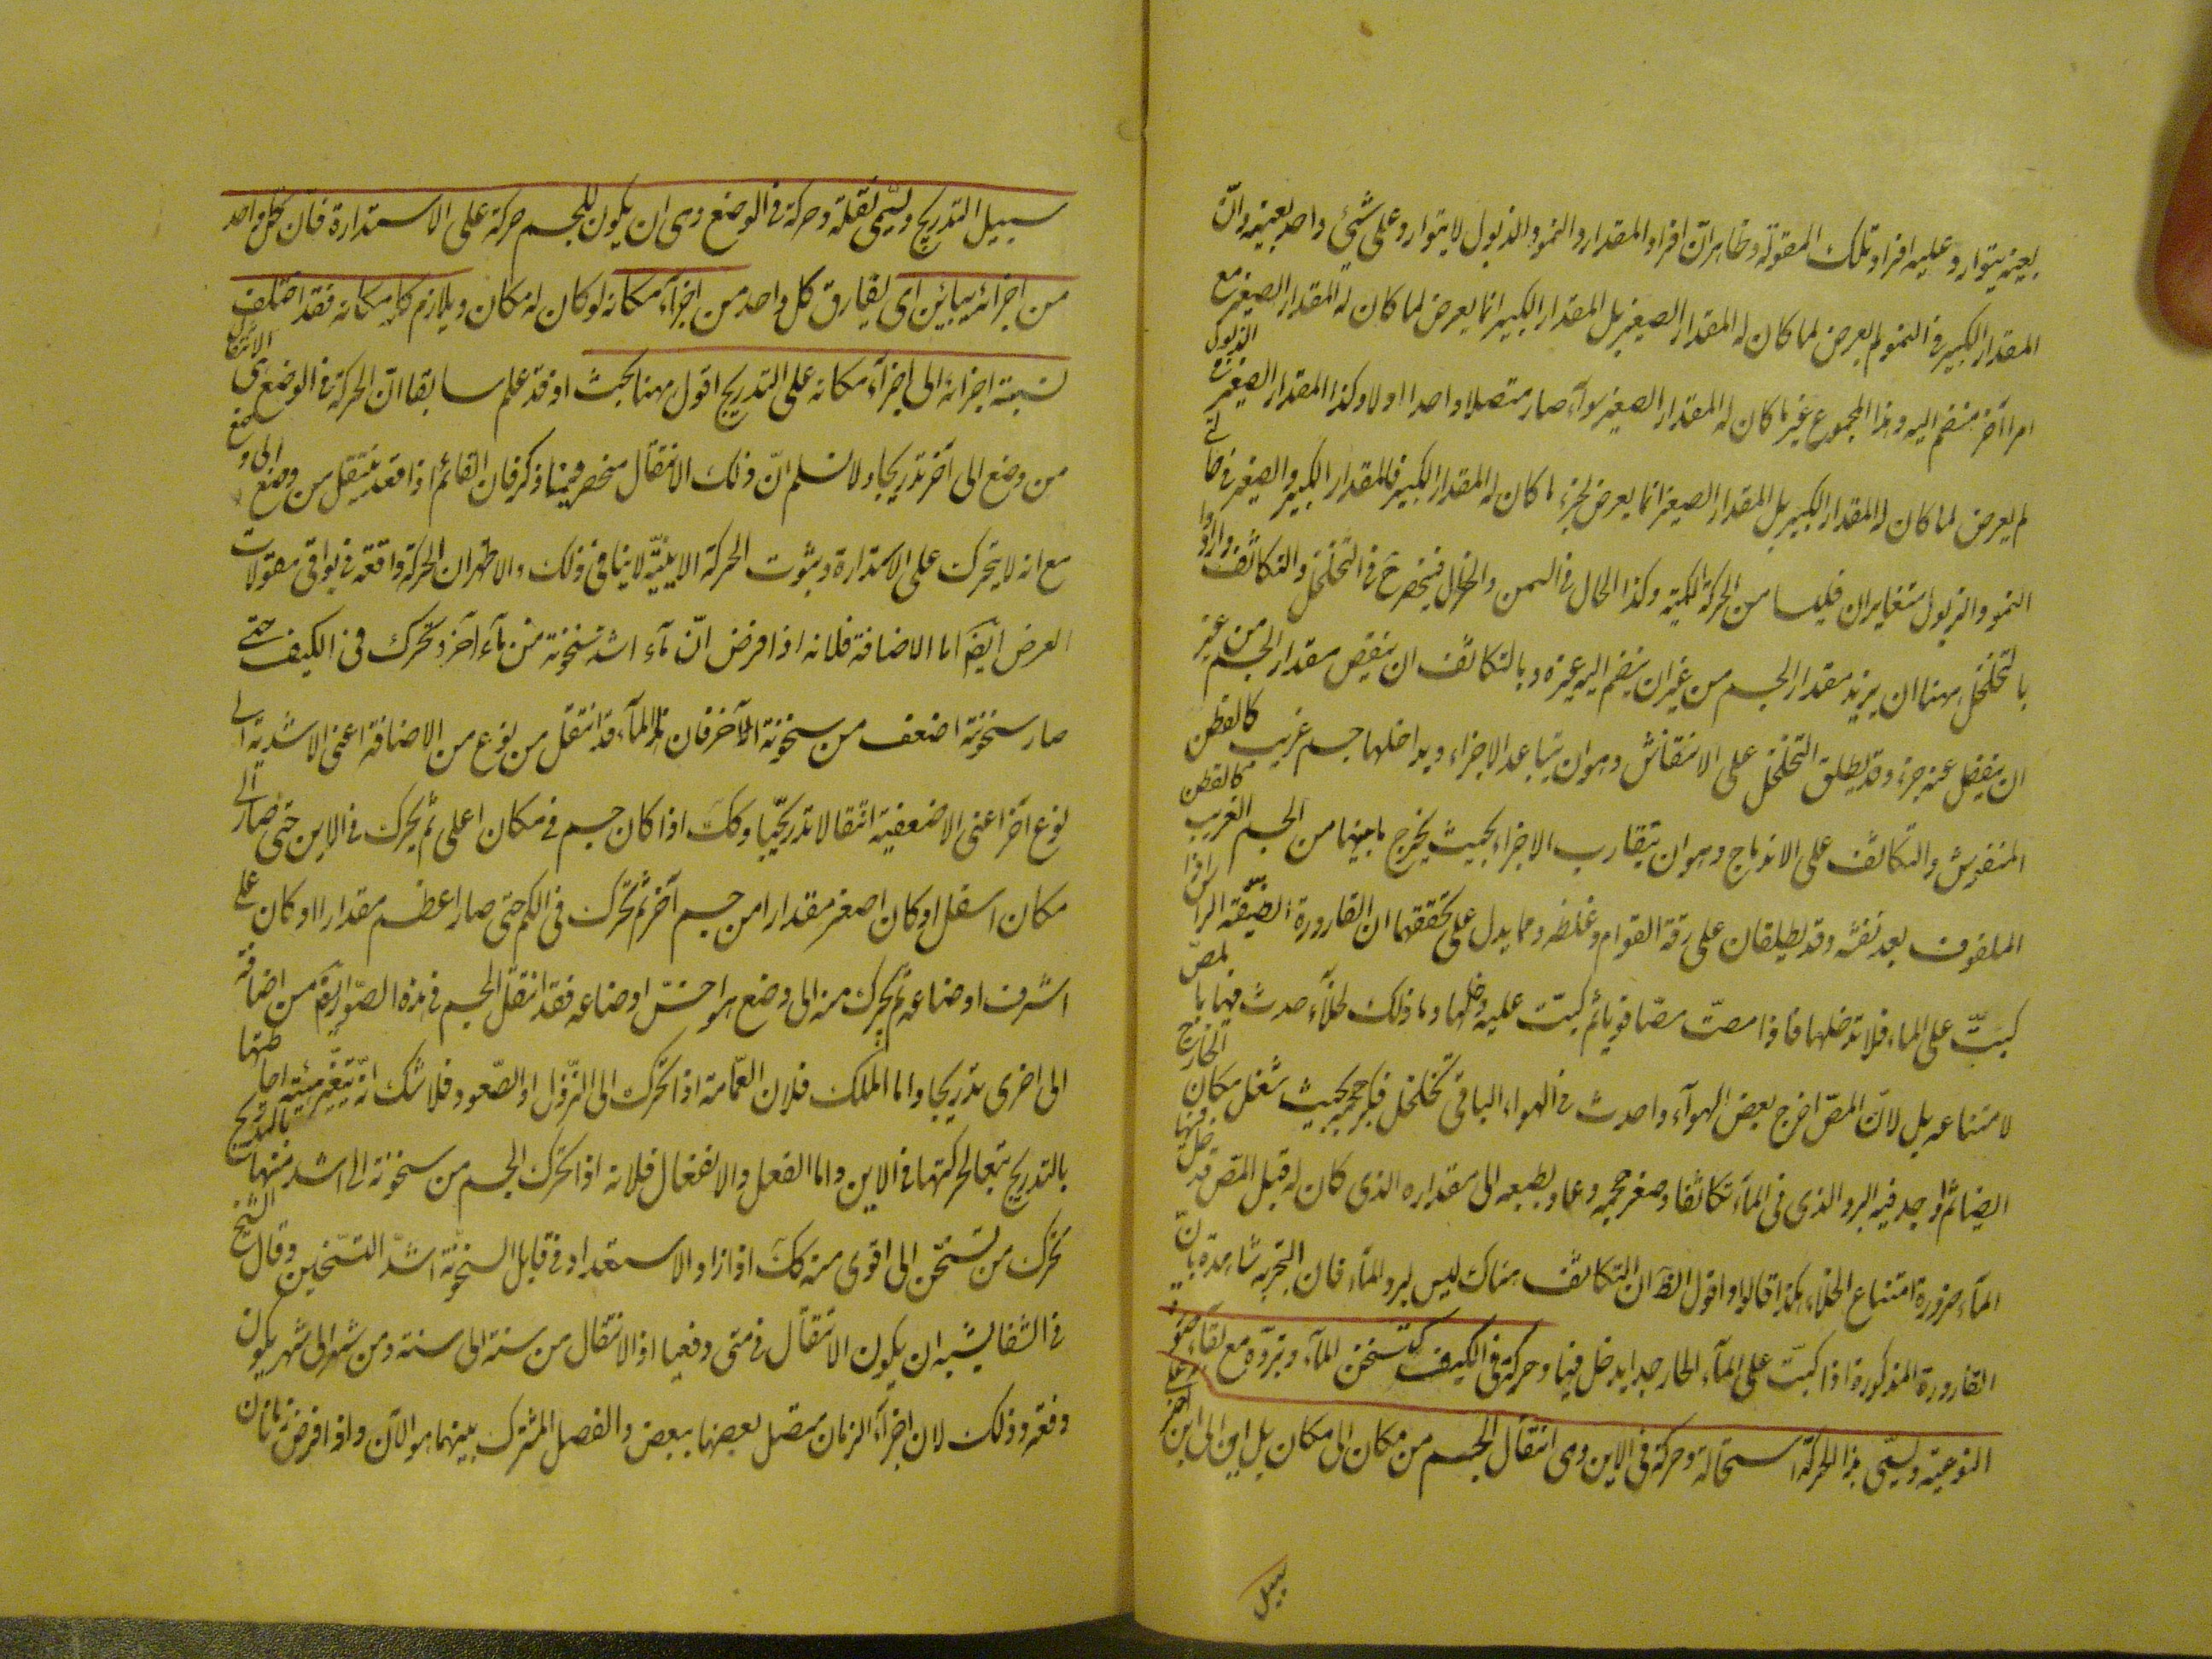 بعينه يتوارد عليه افراد تلك المقولة وظاهر انّ افراد المقدار والنمو والذبول لا يتوارد على شئ واحد بعينه وانّ
المقدار الكبير فى النمو لم يعرض لما كان له المقدار الصغير بل المقدار الكبير انما يعرض لما كان له المقدار الصغير مع
امر اخر منضم اليه وهذا المجموع غير ما كان له المقدار الصغير سواء صار متصلا واحدا اولا وكذا المقدار الصغير فى الذبول
لم يعرض لما كان له المقدار الكبير بل المقدار الصغير انما يعرض لجزء ما كان له المقدار الكبير فالمقدار الكبير والصغير فى حالتى
النمو والذبول متغايران فليسا من الحركة الكمية وكذا الحال فى السمن والهزال فينحصر ح فى التخلخل والتكاثف وارادوا
بالتخلخل ههنا ان يزيد مقدار الجسم من غير ان ينضم اليه غيره وبالتكاثف ان ينقص مقدار الجسم من غير
ان ينفصل عنه جزء وقد يطلق التخلخل على الانتفاش وهو ان يتباعد الاجزاء ويداخلها جسم غريب كالقطن
المنفوش والتكاثف على الاندماج وهو ان يتقارب الاجزاء بحيث يخرج ما بينها من الجسم الغريب كالقطن
الملفوف بعد نفشه وقد يطلقان على رقة القوام وغلظه ومما يدل على تحققهما ان القارورة الضيّقة الراس اذا
كبّت على الماء فلا تدخلها فاذا مصت مصّا قويا ثم كبت عليه دخلها وما ذلك لخلاء حدث فيها بالمصّ
لامتناعه بل لانّ المص اخرج بعض الهوآء واحدث فى الهواء الباقى تخلخل فكبر حجمه بحيث شغل مكان الخارج
ايضا ثم اوجد فيه البرد الذى فى المآء تكاثفا وصغر حجمه وعاد بطبعه الى مقداره الذى كان له قبل المص فدخل فيها
المآء ضرورة امتناع الخلاء هكذا قالوا واقول الظ ان التكاثف هناك ليس لبرد المآء فان التجربة شاهدة بان
القارورة المذكورة اذا كبّت على المآء الحار جدا يدخل فيها وحركة فى الكيف كتسخن المآء وتبرّده مع بقاء صورته
النوعية ويسمّى هذا الحركة استحالة وحركة فى الاين وهى انتقال الجسم من مكان الى مكان بل اين الى اين اخر على
سبيل
سبيل التدريج ويسمى نقلة وحركة فى الوضع وهى ان يكون للجسم حركة على الاستدارة فان كل واحد
من اجزائه يباين اى يفارق كل واحد من اجزآء مكانه لو كان له مكان ويلازم كله مكانه فقد اختلف
نسبة اجزائه الى اجزآء مكانه على التدريج اقول ههنا بحث اذ قد علم سابقا انّ الحركة فى الوضع هى الانتقال
من وضع الى آخر تدريجا ولا نسلم انّ ذلك الانتقال منحصر فيما ذكر فان القائم اذا قعد ينتقل من وضع الى وضع
مع انه لا يتحرك على الاستدارة وثبوت الحركة الاينيّة لا ينافى ذلك والاظهر ان الحركة واقعة فى بواقى مقولات
العرض ايضا اما الاضافة فلانه اذا فرض انّ مآء اشد سخونة من مآء آخر وتحرك فى الكيف حتى
صار سخونة اضعف من سخونة الآخر فان هذا المآء قد انتقل من نوع من الاضافة اعنى الاشدية الى
نوع آخر اعنى الاضعفية انتقالا تدريجيّا وكك اذا كان جسم فى مكان اعلى ثم تحرك فى الاين حتى صار الى
مكان اسفل او كان اصغر مقدارا من جسم آخر ثم تحرك فى الكم حتى صار اعظم مقدارا او كان على
اشرف اوضاعه ثم تحرك منه الى وضع هو اخسّ اوضاعه فقد انتقل الجسم فى هذه الصور ايضا من اضافة
الى اخرى تدريجا واما الملك فلان العمّامة اذا تحرك الى النّزول او الصّعود فلا شك انّه يتغير هيئة احاطتها
بالتدريج تبعا لحركتها فى الاين واما الفعل والانفعال فلانه اذا تحرك الجسم من سخونة الى اشد منها بالتدريج
تحرك من تسخّن الى اقوى منه كك اذ ازداد الاستعداد فى قابل السخونة اشتدّ التسخين وقال الشيخ
فى الشفا يشبه ان يكون الانتقال فى متى دفعيا اذ الانتقال من سنة الى سنة ومن شهر الى شهر يكون
دفعة وذلك لان اجزآء الزمان متصل بعضها ببعض والفصل المشترك بينهما هو الآن واذا فرض زمانان